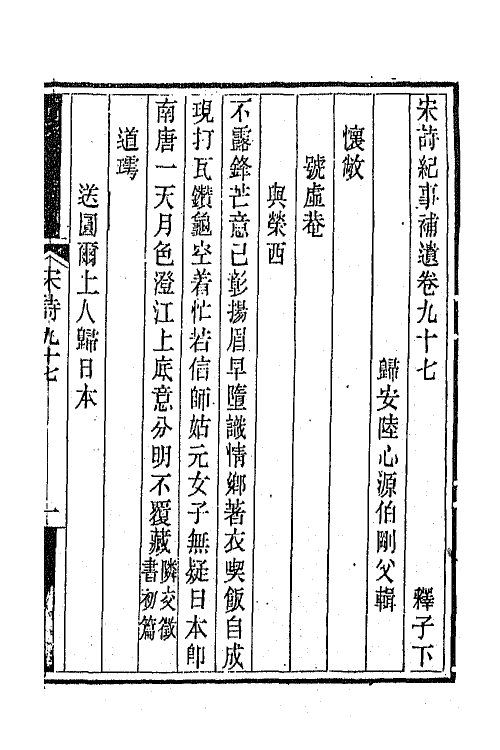 宋詩紀事補遺卷九十七　釋子下
歸安陸心源伯剛父輯
懷敞
號虛菴
與榮西
不露鋒芒意已彰揚眉早墮識情鄉著衣喫飯自成
現打瓦鑽龜空着忙若信師姑元女子無疑日本卽
南唐一天月色澄江上底意分明不覆藏隣交徵
書初篇
道璹
送圓爾上人歸日本
宋詩九十七
一